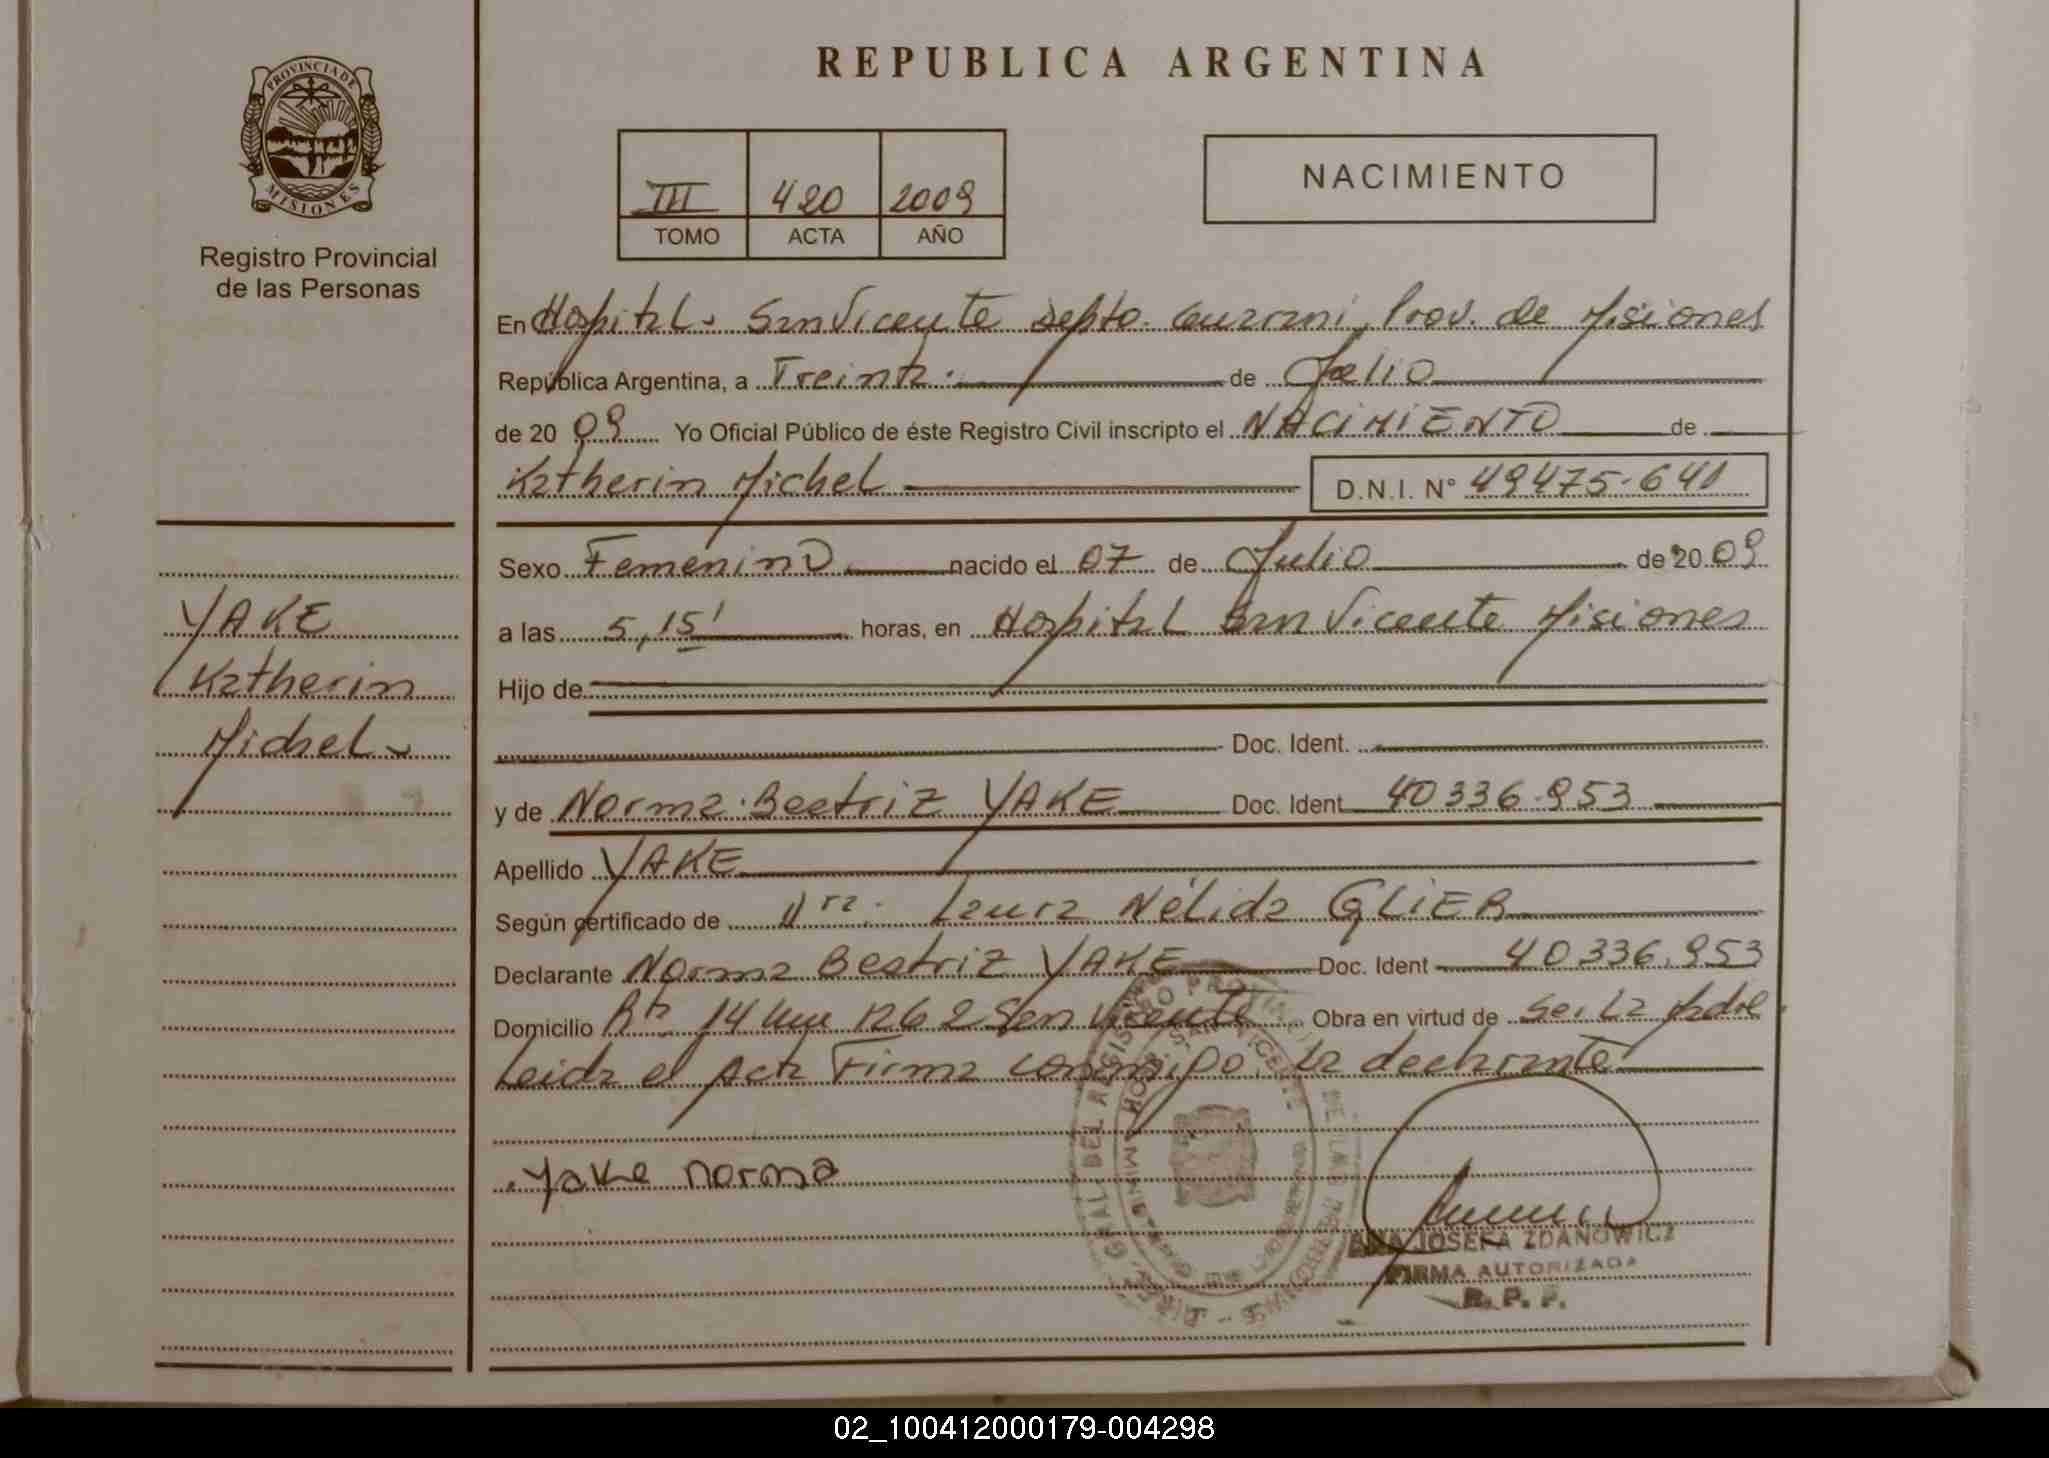 REPUBLICA ARGENTINA
PROVINCIA DE
MISIONES
Registro Provincial
de las Personas
III 420 2009
TOMO ACTA AÑO
NACIMIENTO
En Hospital. San Vicente Depto. Guarani, Prov. de Misiones
República Argentina, a Treinta. de Julio
de 20 09 Yo Oficial Público de éste Registro Civil inscripto el NACIMIENTO de
Katherin Michel D.N.I. N° 49475.641
Sexo Femenino nacido el 07 de Julio de 20 09
a las 5,15' horas, en Hospital San Vicente Misiones
Hijo de
Doc. Ident.
y de Norma Beatriz YAKE Doc. Ident 40336.953
Apellido YAKE
Según certificado de Dra. Laura Nélida GLIER
Declarante Norma Beatriz YAKE Doc. Ident 40336.953
Domicilio Rta 14 km 1262 San Vicente Obra en virtud de Ser La Madre
Leida el Acta Firma conmigo la declarante
YAKE
Katherin
Michel
Yake norma
HOSP. SAN VICENTE
ANA JOSEFA ZDANOWICZ
FIRMA AUTORIZADA
R. P. P.
02_100412000179-004298